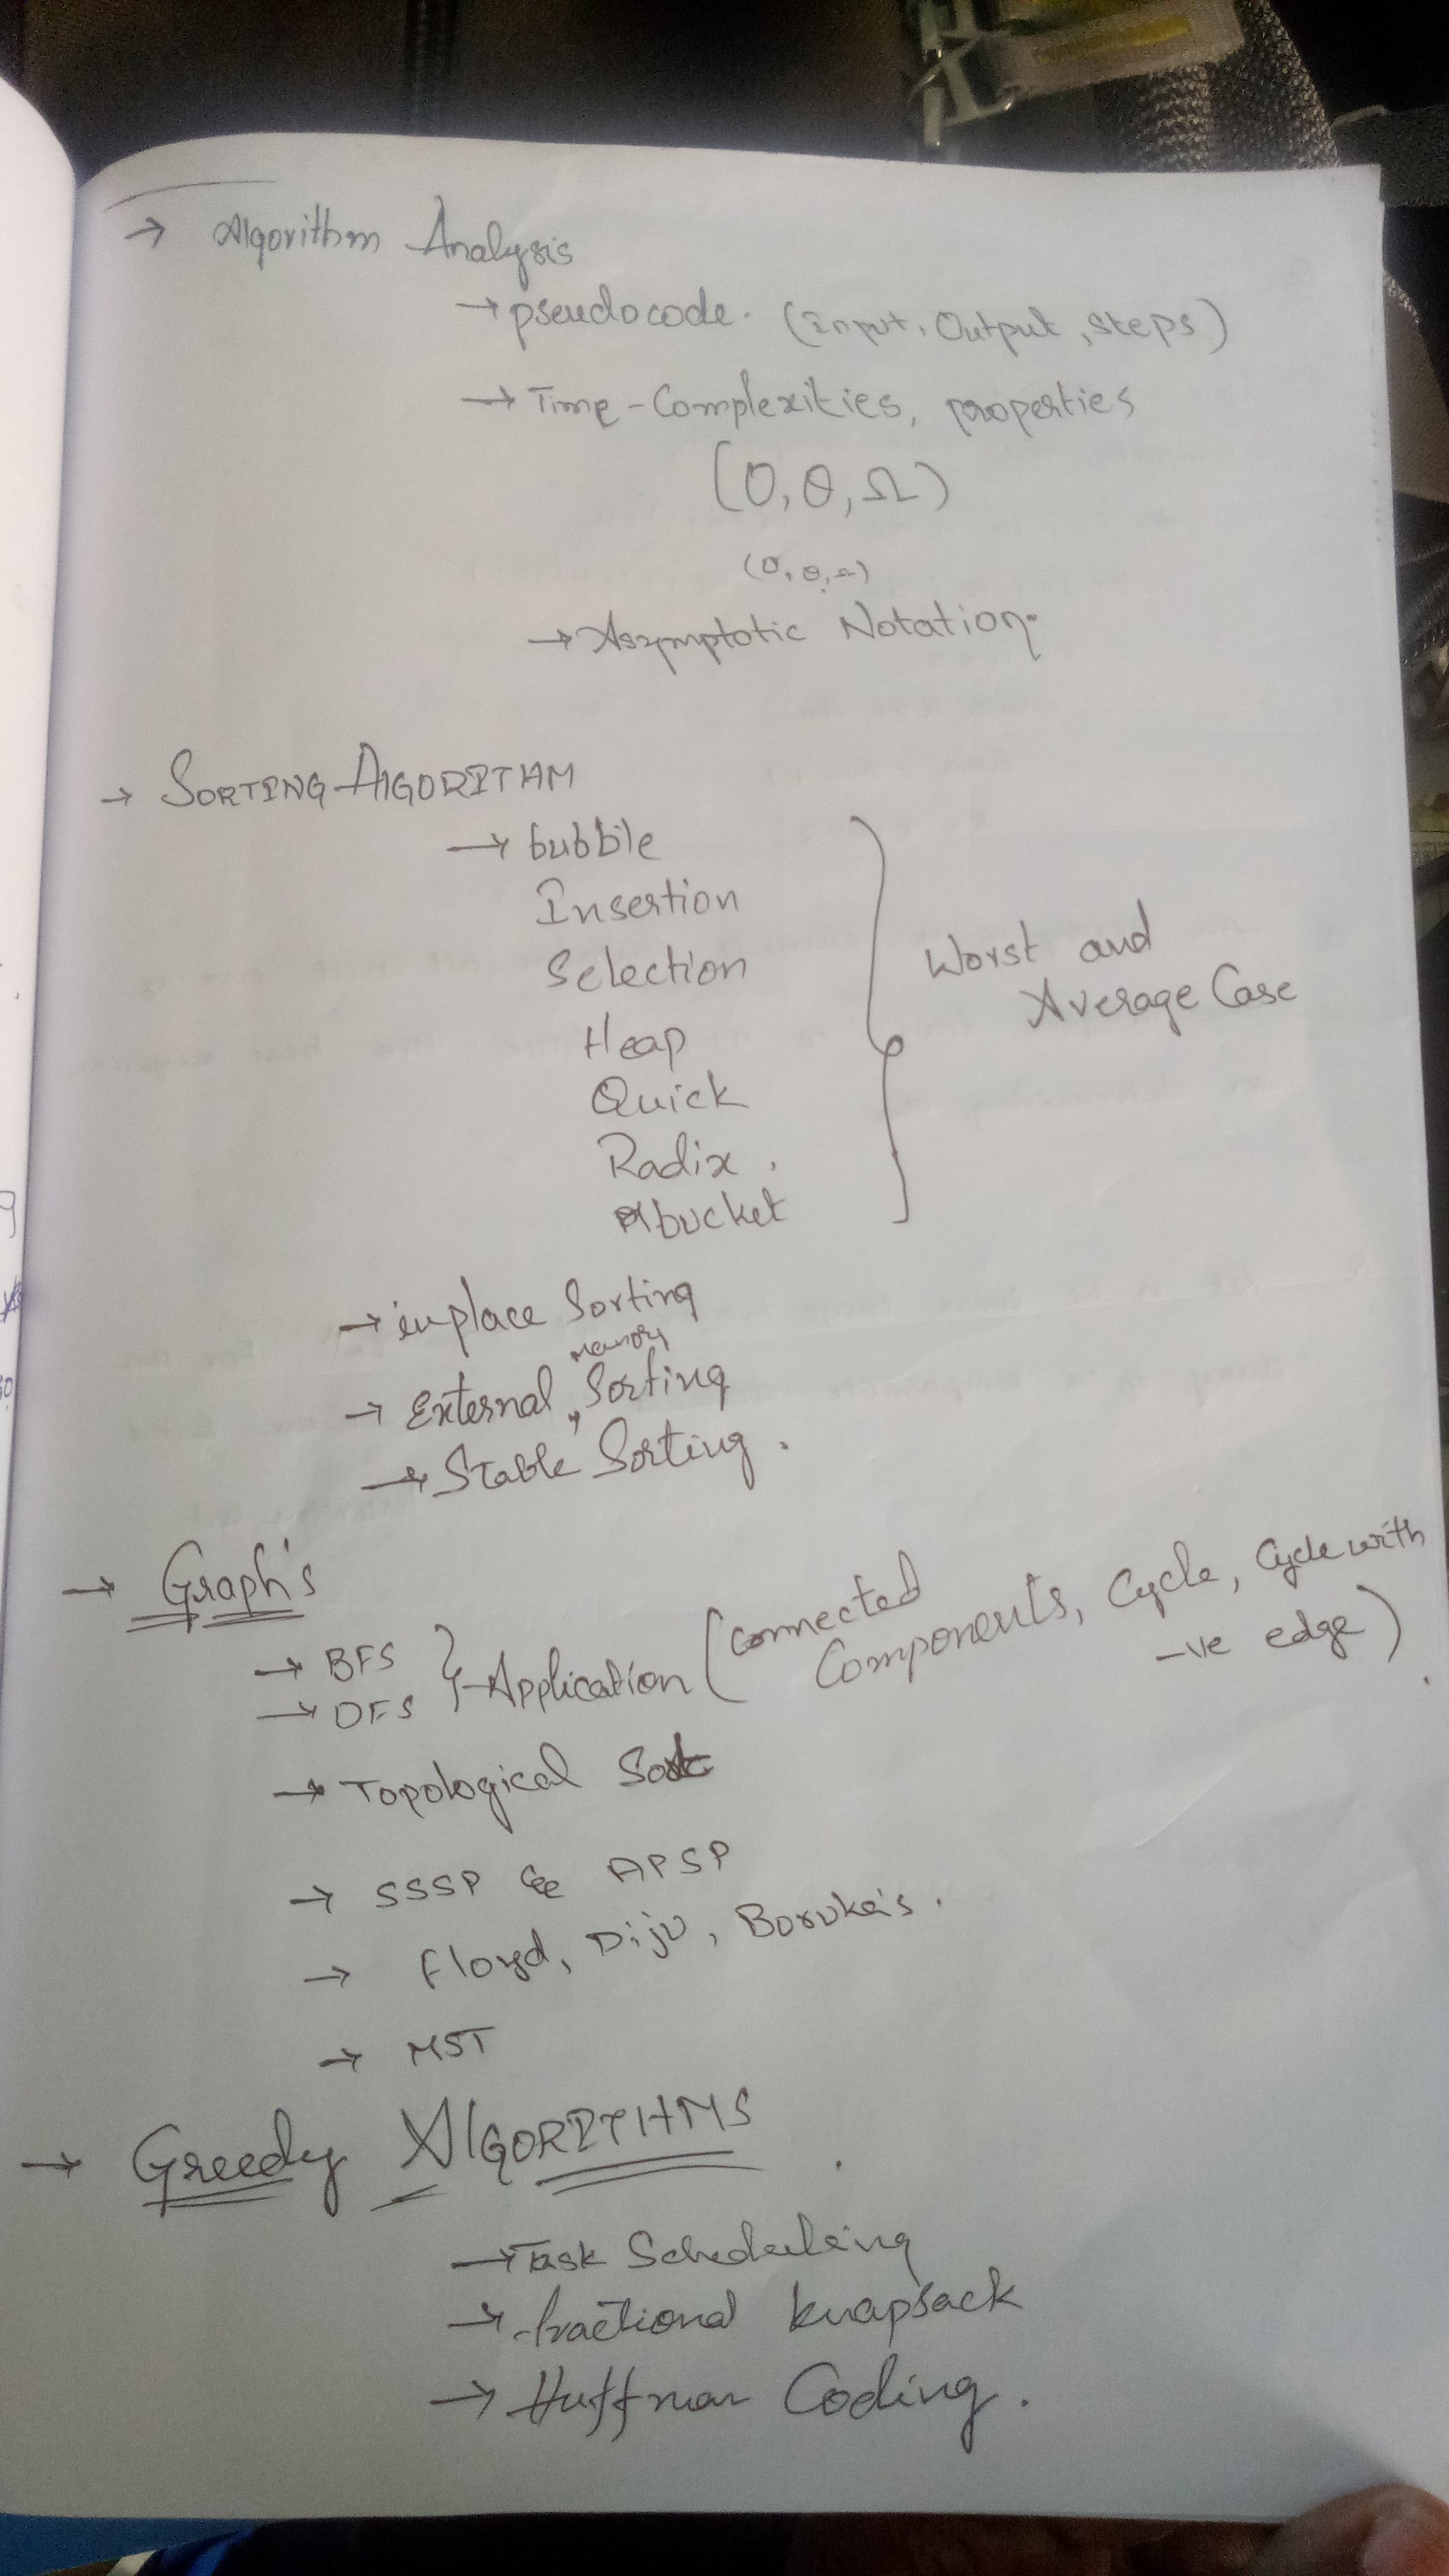 → Algorithm Analysis
→ pseudocode. (Input, Output, steps)
→ Time-Complexities, properties
(O, θ, Ω)
(o, θ, Ω)
→ Asymptotic Notation.
→ SORTING ALGORITHM
→ bubble
Insertion
Selection
Heap
Quick
Radix.
bucket
Worst and
Average Case
→ inplace Sorting
→ External memory Sorting
→ Stable Sorting.
→ Graph's
→ BFS
→ DFS
} Application (connected
Components, Cycle, Cycle with
-ve edge)
→ Topological Sort
→ SSSP & APSP
→ Floyd, Dijv, Boruka's.
→ MST
→ Greedy ALGORITHMS
→ Task Scheduling
→ fractional knapsack
→ Huffman Coding.